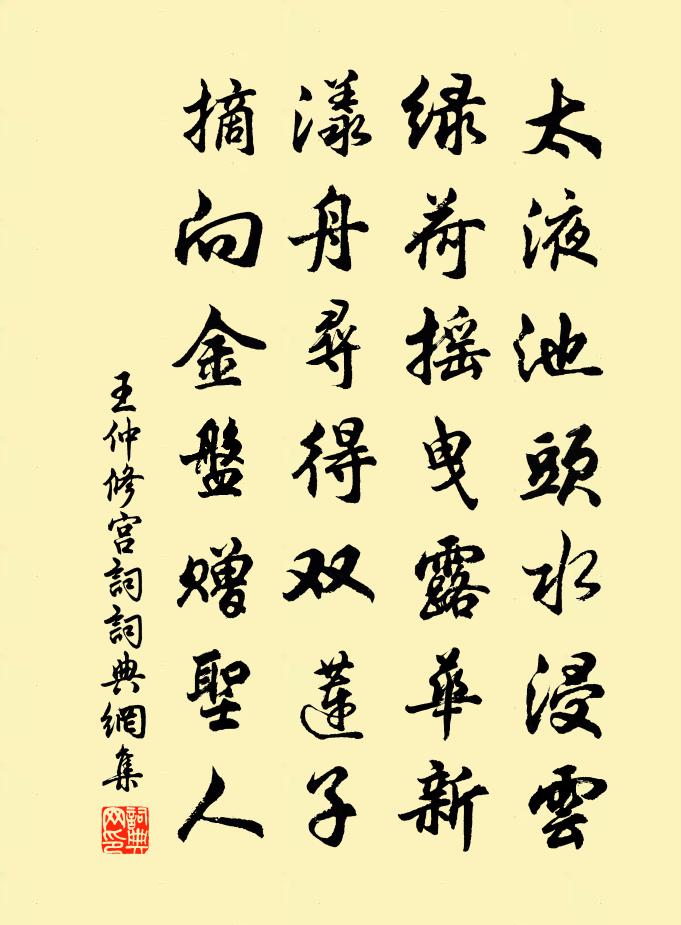 太液池頭水浸雲
绿荷摇曳露華新
漾舟尋得双蓮子
摘向金盤赠聖人
王仲修宫詞詞典網集
詞典网印